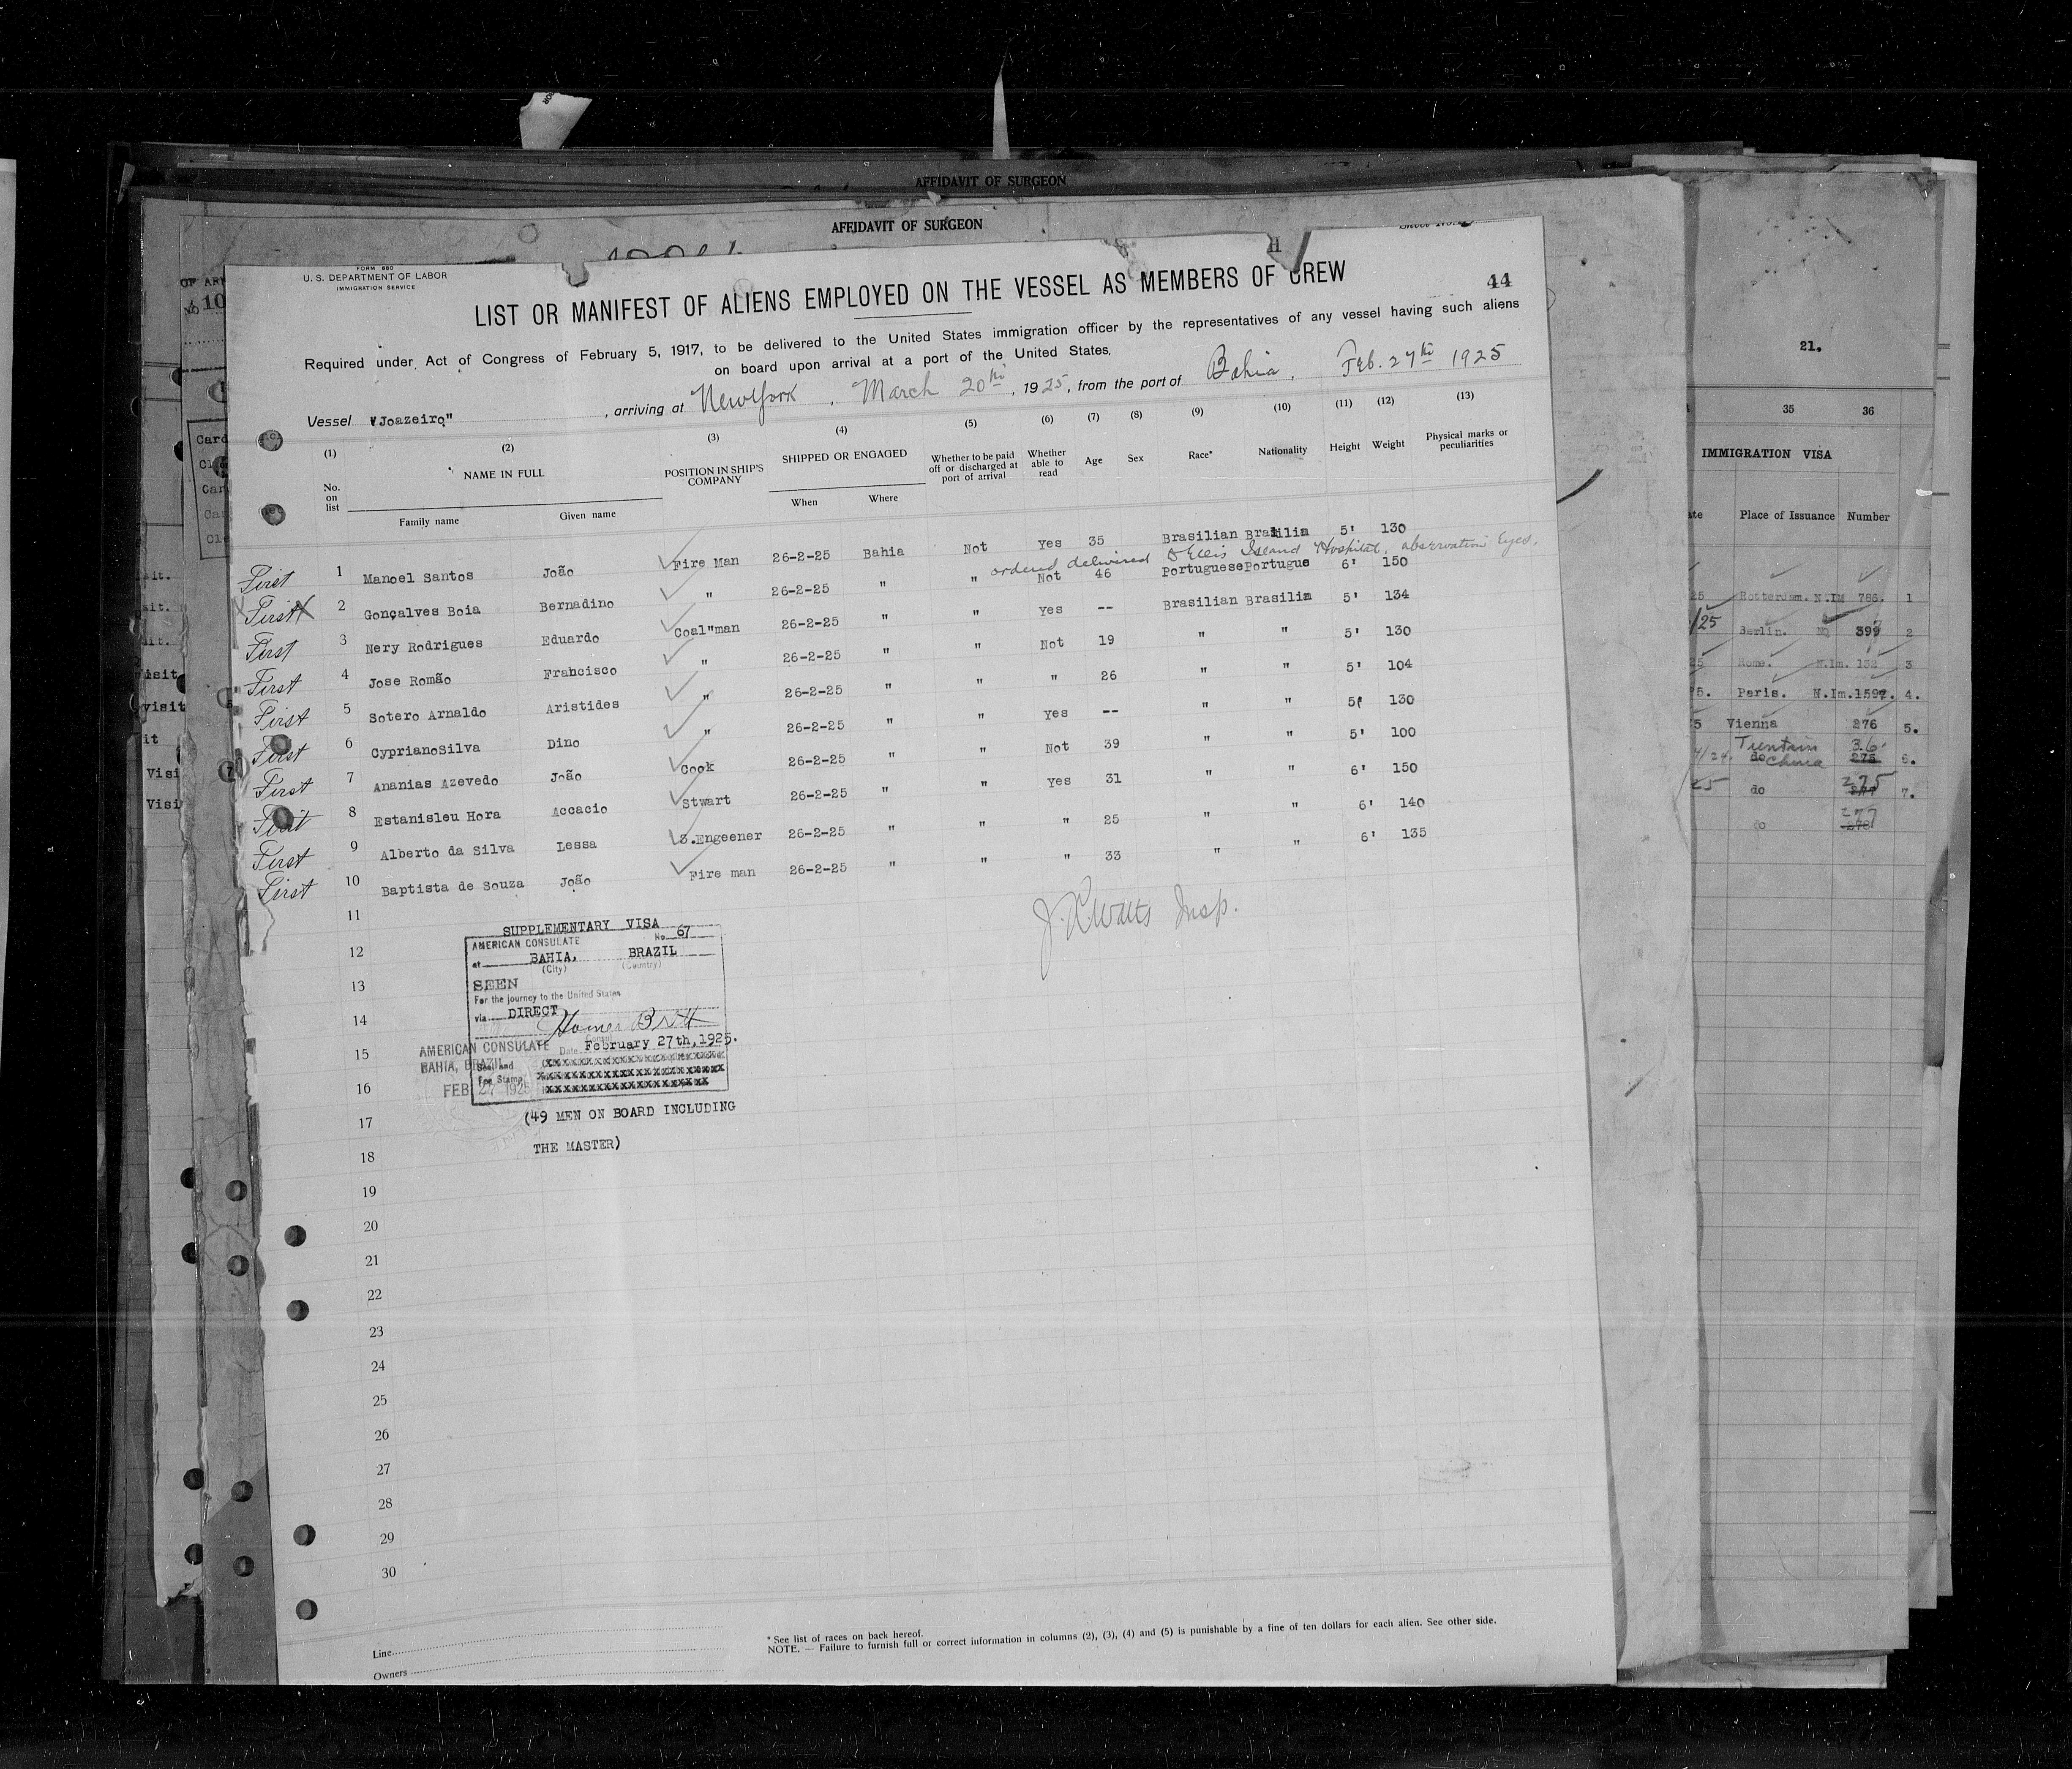 AFFIDAVIT OF SURGEON
AFFIDAVIT OF SURGEON
FORM 680
U. S. DEPARTMENT OF LABOR
IMMIGRATION SERVICE
44
LIST OR MANIFEST OF ALIENS EMPLOYED ON THE VESSEL AS MEMBERS OF CREW
Required under Act of Congress of February 5, 1917, to be delivered to the United States immigration officer by the representatives of any vessel having such aliens
on board upon arrival at a port of the United States.
Vessel "Joazeiro", arriving at New York, March 20th, 1925, from the port of Bahia, Feb. 27th 1925
(1) (2) (3) (4) (5) (6) (7) (8) (9) (10) (11) (12) (13)
No. on list NAME IN FULL POSITION IN SHIP'S COMPANY SHIPPED OR ENGAGED Whether to be paid off or discharged at port of arrival Whether able to read Age Sex Race* Nationality Height Weight Physical marks or peculiarities
Family name Given name When Where
First 1 Manoel Santos João Fire Man 26-2-25 Bahia Not Yes 35 Brasilian Brasilia 5' 130
ordered delivered to Ellis Island Hospital, observation eyes.
First X 2 Gonçalves Boia Bernadino " 26-2-25 " " Not 46 Portuguese Portugue 6' 150
First 3 Nery Rodrigues Eduardo Coal"man 26-2-25 " " Yes -- Brasilian Brasilia 5' 134
First 4 Jose Romão Francisco " 26-2-25 " " Not 19 " " 5' 130
First 5 Sotero Arnaldo Aristides " 26-2-25 " " " 26 " " 5' 104
First 6 CyprianoSilva Dino " 26-2-25 " " Yes -- " " 5' 130
First 7 Ananias Azevedo João Cook 26-2-25 " " Not 39 " " 5' 100
First 8 Estanisleu Hora Accacio Stwart 26-2-25 " " Yes 31 " " 6' 150
First 9 Alberto da Silva Lessa 3.Engeener 26-2-25 " " " 25 " " 6' 140
First 10 Baptista de Souza João Fire man 26-2-25 " " " 33 " " 6' 135
11
J. R. Watts Insp.
SUPPLEMENTARY VISA
AMERICAN CONSULATE No 67
12
at BAHIA, BRAZIL
(City) (Country)
13
SEEN
For the journey to the United States
14
via DIRECT
Homer Brett
15
AMERICAN CONSULATE
Date February 27th,1925.
BAHIA, BRAZIL
Seal and
Fee Stamp
16
FEB 27 1925
17
(49 MEN ON BOARD INCLUDING
18
THE MASTER)
19
20
21
22
23
24
25
26
27
28
29
30
Line
Owners
* See list of races on back hereof.
NOTE. — Failure to furnish full or correct information in columns (2), (3), (4) and (5) is punishable by a fine of ten dollars for each alien. See other side.
21.
35 36
IMMIGRATION VISA
Place of Issuance Number
Rotterdam. N.IM 786. 1
Berlin. 399 2
Rome. N.Im. 132 3
Paris. N.Im.1592. 4.
Vienna 276 5.
do 6.
do 275 7.
277